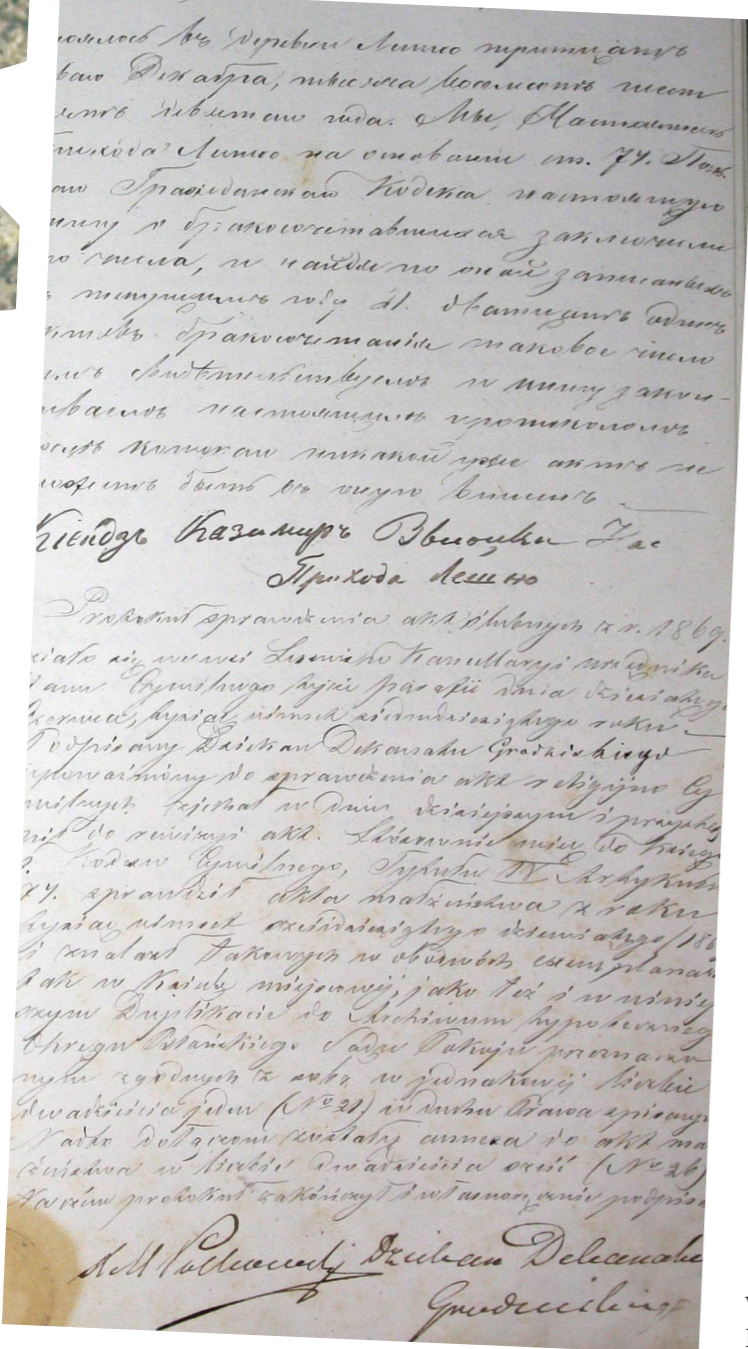 въ деревни Лешно тридцать
Декабря, тысяча восемсотъ шест
девятаго года. Мы, Настоятель
прихода Лешно на основаніи ст. 74. Поль.
Гражданскаго Кодекса настоящую
книгу о бракосочетавшихся заключили
числа, и найдя по оной записанныхъ
текущемъ году 21. двадцать одинъ
актовъ бракосочетанія таковое число
свидѣтельствуемъ и книгу закон-
настоящимъ протоколомъ
послѣ котораго никакой уже актъ не
можетъ быть въ оную внесенъ
Ксендзъ Казимиръ Нас
Прихода Лешно
Protokuł sprawdzenia akt ślubnych z r. 1869.
się we wsi Lesznie w Kancellaryi urzędnika
stanu Cywilnego tejże parafii dnia dziesiątego
Czerwca, tysiąc ośmset siedmdziesiątego roku
Podpisany Dziekan Dekanatu Grodziskiego
upoważniony do sprawdzenia akt religijno Cy
wilnych zjechał w dniu dzisiejszym i przystą
pił do rewizyi akt. Stósownie więc do księgi
Kodexu Cywilnego, Tytułu IV Artykułu
74. sprawdził akta małżeństwa z roku
tysiąc ośmset sześćdziesiątego dziewiątego /186
i znalazł takowych w obydwóch exemplarzach
tak w Księdze miejscowéj, jako też i w niniej
szym Duplikacie do Archiwum hypotecznego
Okręgu Błońskiego Sądu Pokoju przeznaczo
nym zgodnych z sobą w jednakowéj liczbie
dwadzieścia jeden (No 21) w duchu Prawa spisanych
Nadto dołączone zostały annexa do akt ma
żeństwa w liczbie dwadzieścia sześć (No 26)
Na czém protokuł zakończył i własnoręcznie podpisał
Dziekan Dekanatu
Grodziskiego